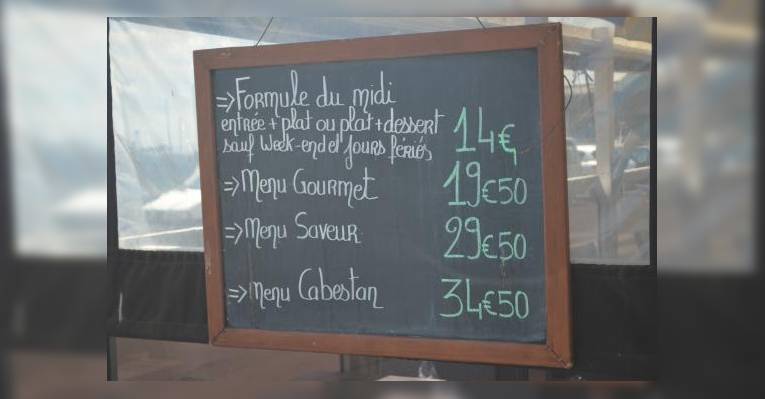 =>Formule du midi
entrée + plat ou plat + dessert 14€
sauf Week-end et jours fériés
=>Menu Gourmet 19€50
=>Menu Saveur 29€50
=>Menu Cabestan 34€50